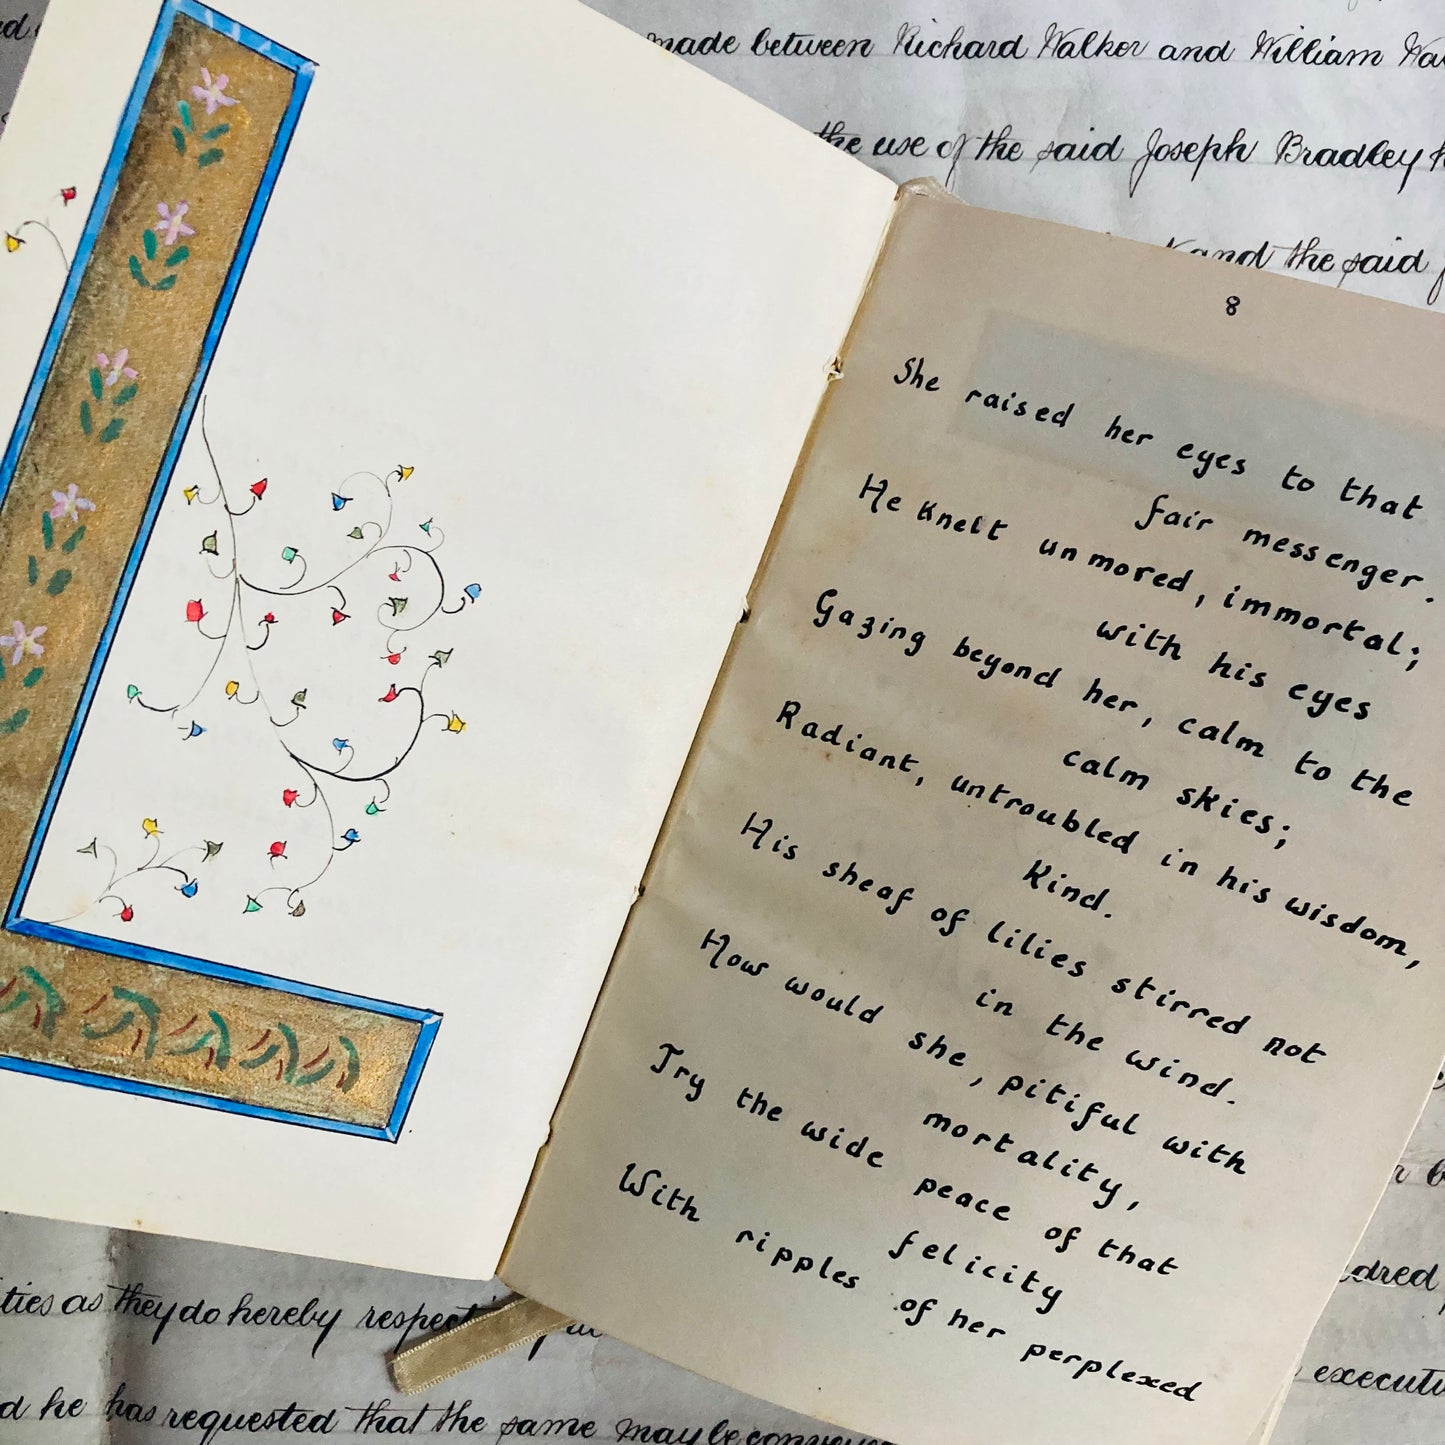 made between Richard Walker and William
the use of the said Joseph Bradley
and the said
8
She raised her eyes to that
fair messenger.
He knelt unmored, immortal;
with his eyes
Gazing beyond her, calm to the
calm skies;
Radiant, untroubled in his wisdom,
Kind.
His sheaf of lilies stirred not
in the wind.
How would she, pitiful with
mortality,
Try the wide peace of that
felicity
With ripples of her perplexed
ties as they do hereby
executi
d he has requested that the same may be